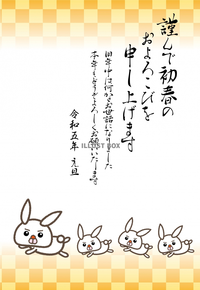 謹んで初春の
およろこびを
申し上げます
旧年中は何かとお世話になりました
本年もどうぞよろしくお願いいたします
令和五年 元旦
ILLUST BOX